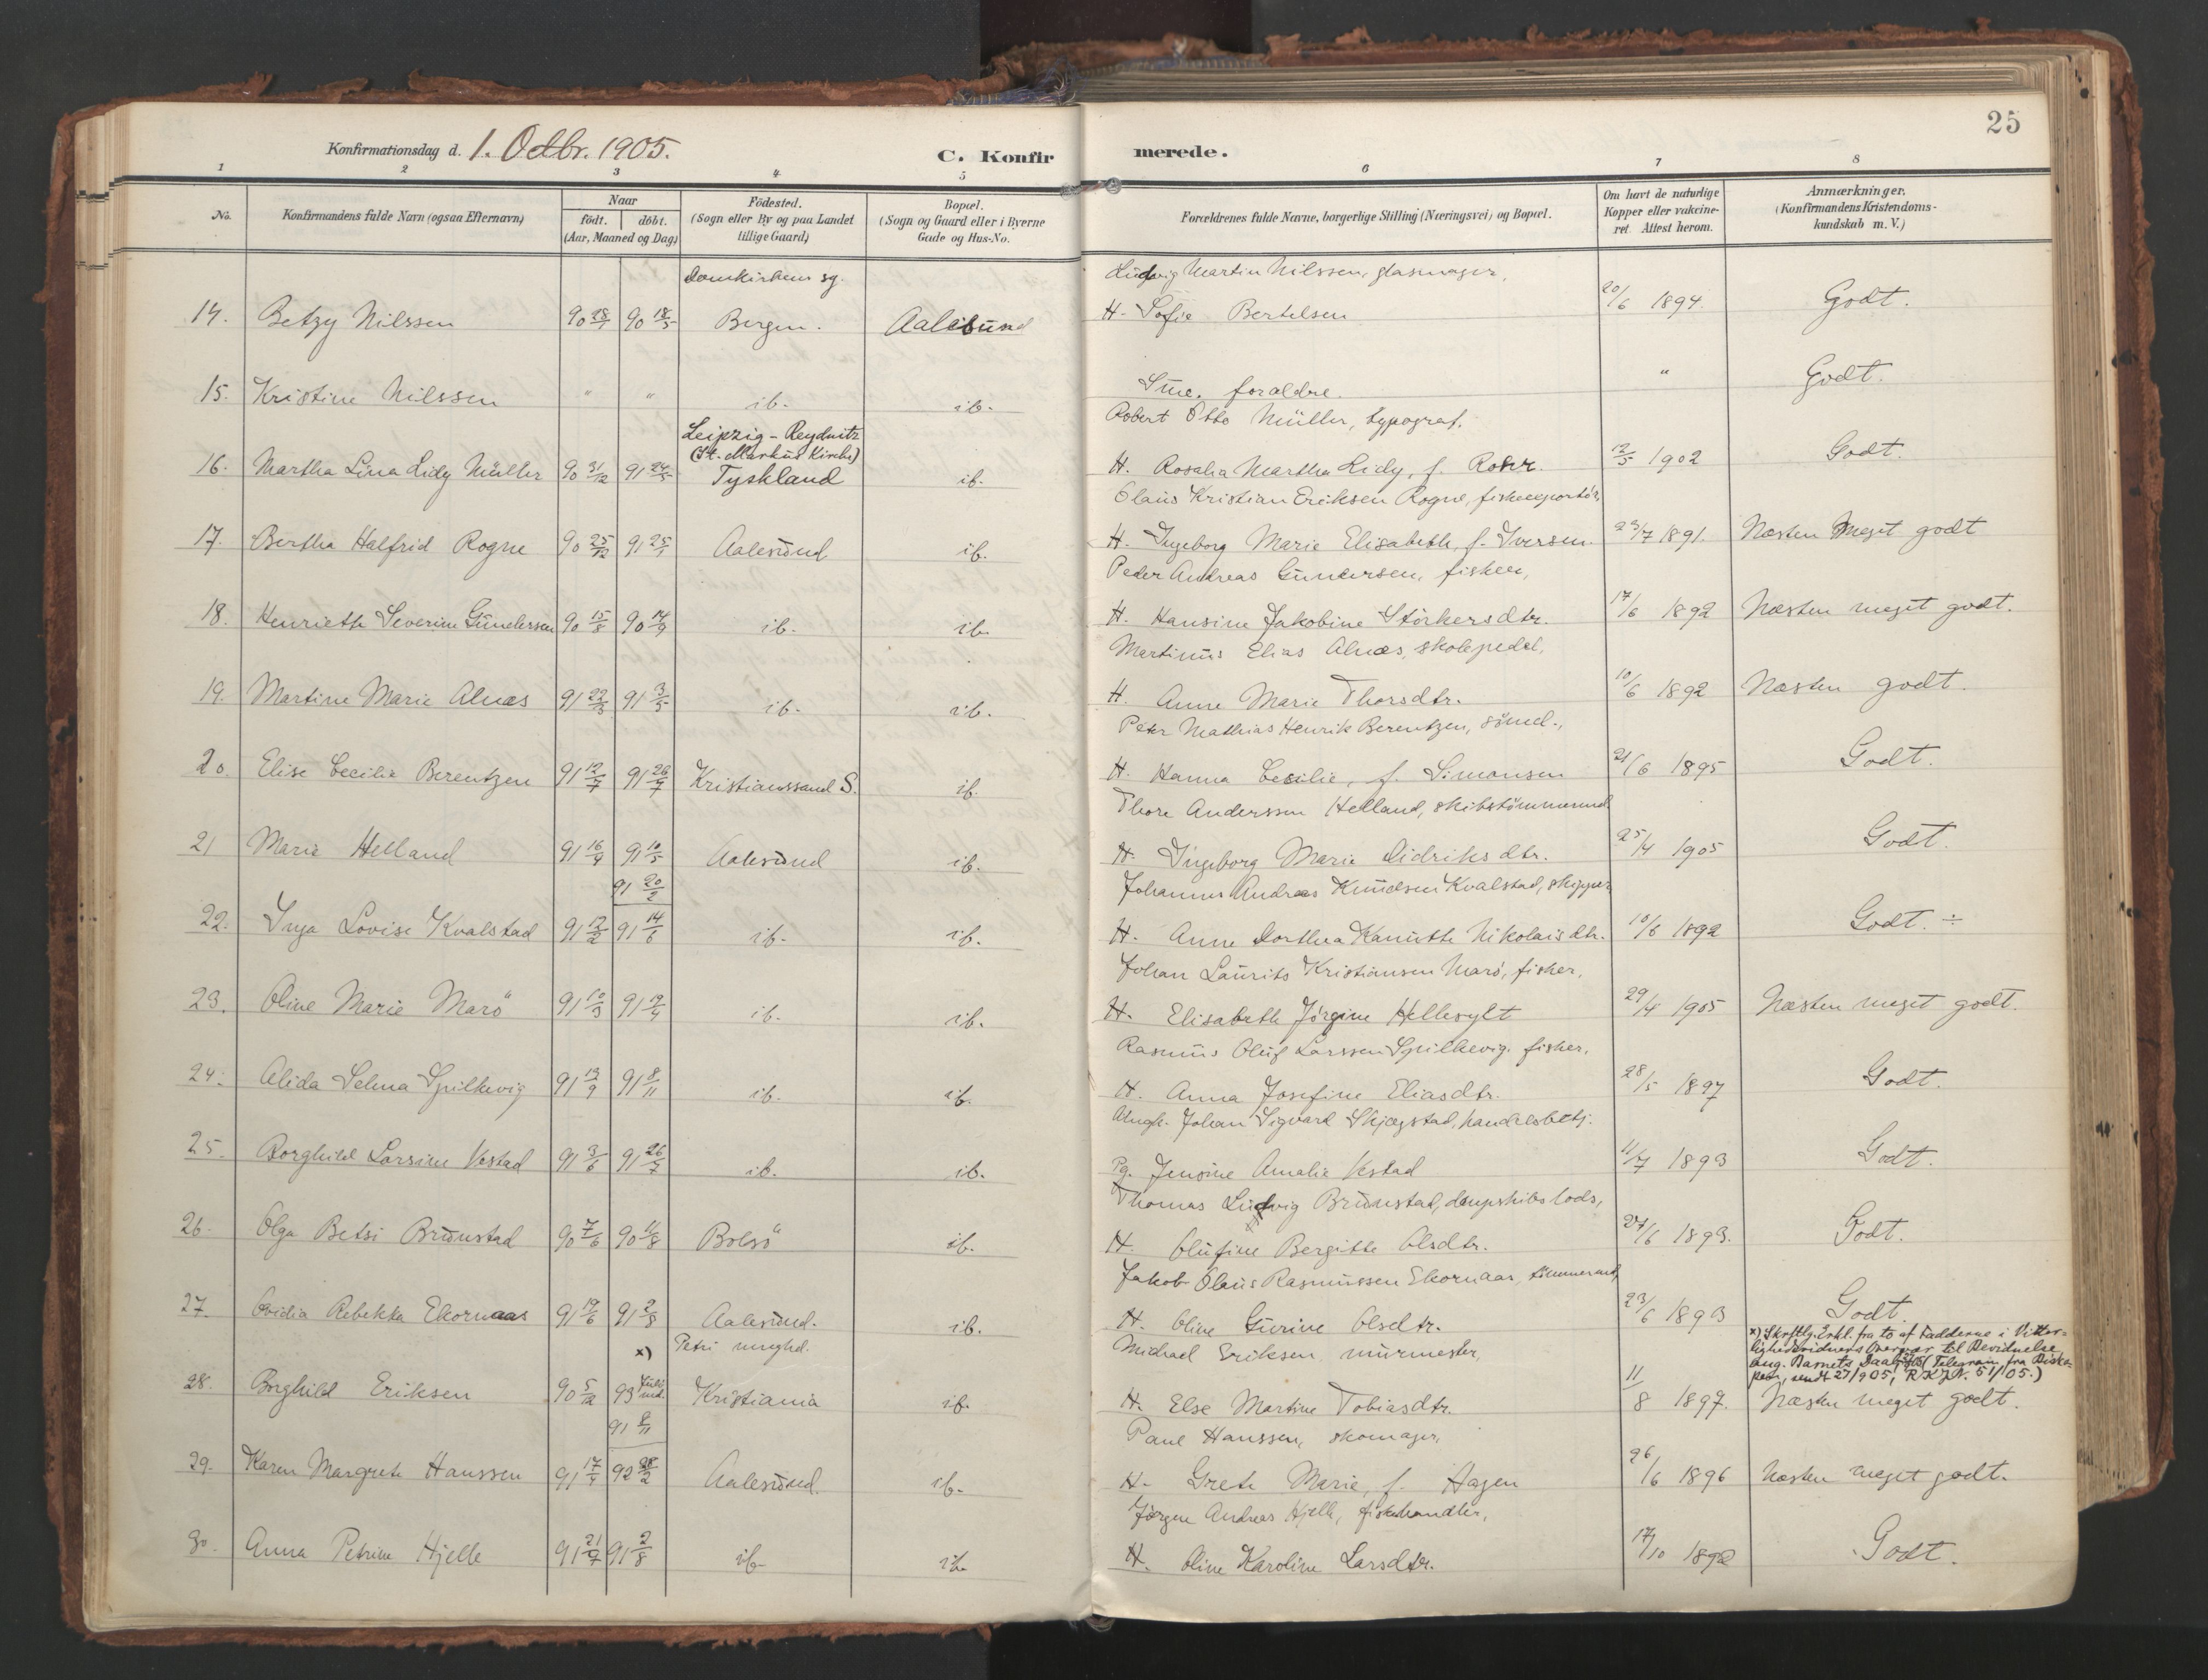 25
Konfirmationsdag d. 1. Octbr. 1905. C. Konfirmerede.
1 2 3 4 5 6 7 8
No. Konfirmandens fulde Navn (ogsaa Efternavn) Naar født. døbt. (Aar, Maaned og Dag) Födested. (Sogn eller By og paa Landet tillige Gaard) Bopæl. (Sogn og Gaard eller i Byerne Gade og Hus-No. Forældrenes fulde Navne, borgerlige Stilling (Næringsvei) og Bopæl. Om havt de naturlige Kopper eller vakcineret. Attest herom. Anmærkninger. (Konfirmandens Kristendomskundskab m. V.)
Domkirkens sg. Ludvig Martin Nilssen, glasmager,
14. Betzy Nilssen 90 28/1 90 18/5 Bergen. Aalesund H. Sofie Bertelsen 20/6 1894. Godt.
15. Kristine Nilssen " " ib. ib. Sme. foraldre. " Godt.
Leipzig - Reydnitz Robert Otto Müller, typograf.
(St. Markus Kirche)
16. Martha Lina Lidy Müller 90 31/12 91 24/5 Tyskland ib. H. Rosalia Martha Lidy, f. Roser. 12/5 1902 Godt.
Olaus Kristian Eriksen Rogne, fiskeexportör,
17. Bertha Halfrid Rogne 90 25/12 91 25/1 Aalesund ib. H. Ingeborg Marie Elisabeth, f. Iversen. 23/7 1891. Næsten Meget godt
Peder Andreas Gundersen, fisker,
18. Henriette Severine Gundersen 90 15/8 90 14/9 ib. ib. H. Hansine Jakobine Störkersdtr. 17/6 1892 Næsten meget godt.
Martinus Elias Alnæs, skolepedel,
19. Martine Marie Alnæs 91 22/3 91 3/5 ib. ib. H. Anne Marie Thorsdtr. 10/6 1892 Næsten godt.
Peter Mathias Henrik Berentzen, sömd.,
20. Elise Cecilie Berentzen 91 12/7 91 26/7 Kristianssand S. ib. H. Hanna Cecilie, f. Simonsen 21/6 1895 Godt.
Thore Anderssen Helland, skibstömmermd
21 Marie Helland 91 16/4 91 10/5 Aalesund ib. H. Ingeborg Marie Didriksdtr. 25/4 1905 Godt.
91 20/2 Johannes Andreas Knudsen Kvalstad, skipper
22. Inga Lovise Kvalstad 91 12/2 91 14/6 ib. ib. H. Anne Dorthea Kanutte Nikolaisdtr. 10/6 1892 Godt. ÷
Johan Laurits Kristiansen Marö, fisker,
23. Oline Marie Marö 91 10/3 91 19/4 ib. ib. H. Elisabeth Jörgine Hellesylt 29/4 1905 Næsten meget godt.
Rasmus Oluf Larssen Spilkevig, fisker,
24. Alida Selma Spilkevig 91 13/9 91 8/11 ib. ib. H. Anna Josefine Eliasdtr. 28/5 1897 Godt.
Ungk. Johan Sigvart Skjægstad, handelsbetj.
25. Borghild Larsine Vestad 91 3/6 91 26/7 ib. ib. Pg. Jensine Amalie Vestad 11/7 1893 Godt.
Thomas Ludvig Brunstad, dampskibslods,
26. Olga Betsi Brunstad 90 7/6 90 11/8 Bolsö ib. H. Olufine Bergitte Olsdtr. 27/6 1893. Godt.
Jakob Olaus Rasmussen Ekornaas, tömmermd,
27. Ovidia Rebekka Ekornaas 91 19/6 91 2/8 Aalesund. ib. H. Oline Gurine Olsdtr. 23/6 1893 Godt.
x) Petri mnghd. Michael Eriksen, murmester, x) Skrftlg. Erkl. fra to af Fadderne i
28. Borghild Eriksen 90 5/12 93 Juli Kristiania ib. H. Else Martine Tobiasdtr. 11/8 1897. Næsten meget godt.
91 8/11 Paul Hanssen, skomager,
29. Karen Margrete Hanssen 91 17/9 92 28/2 Aalesund. ib. H. Grete Marie, f. Hagen 26/6 1896 Næsten meget godt.
Jörgen Andreas Hjelle, fiskehandler,
30. Anna Petrine Hjelle 91 21/7 91 2/8 ib. ib. H. Oline Karoline Larsdtr. 17/10 1892 Godt.